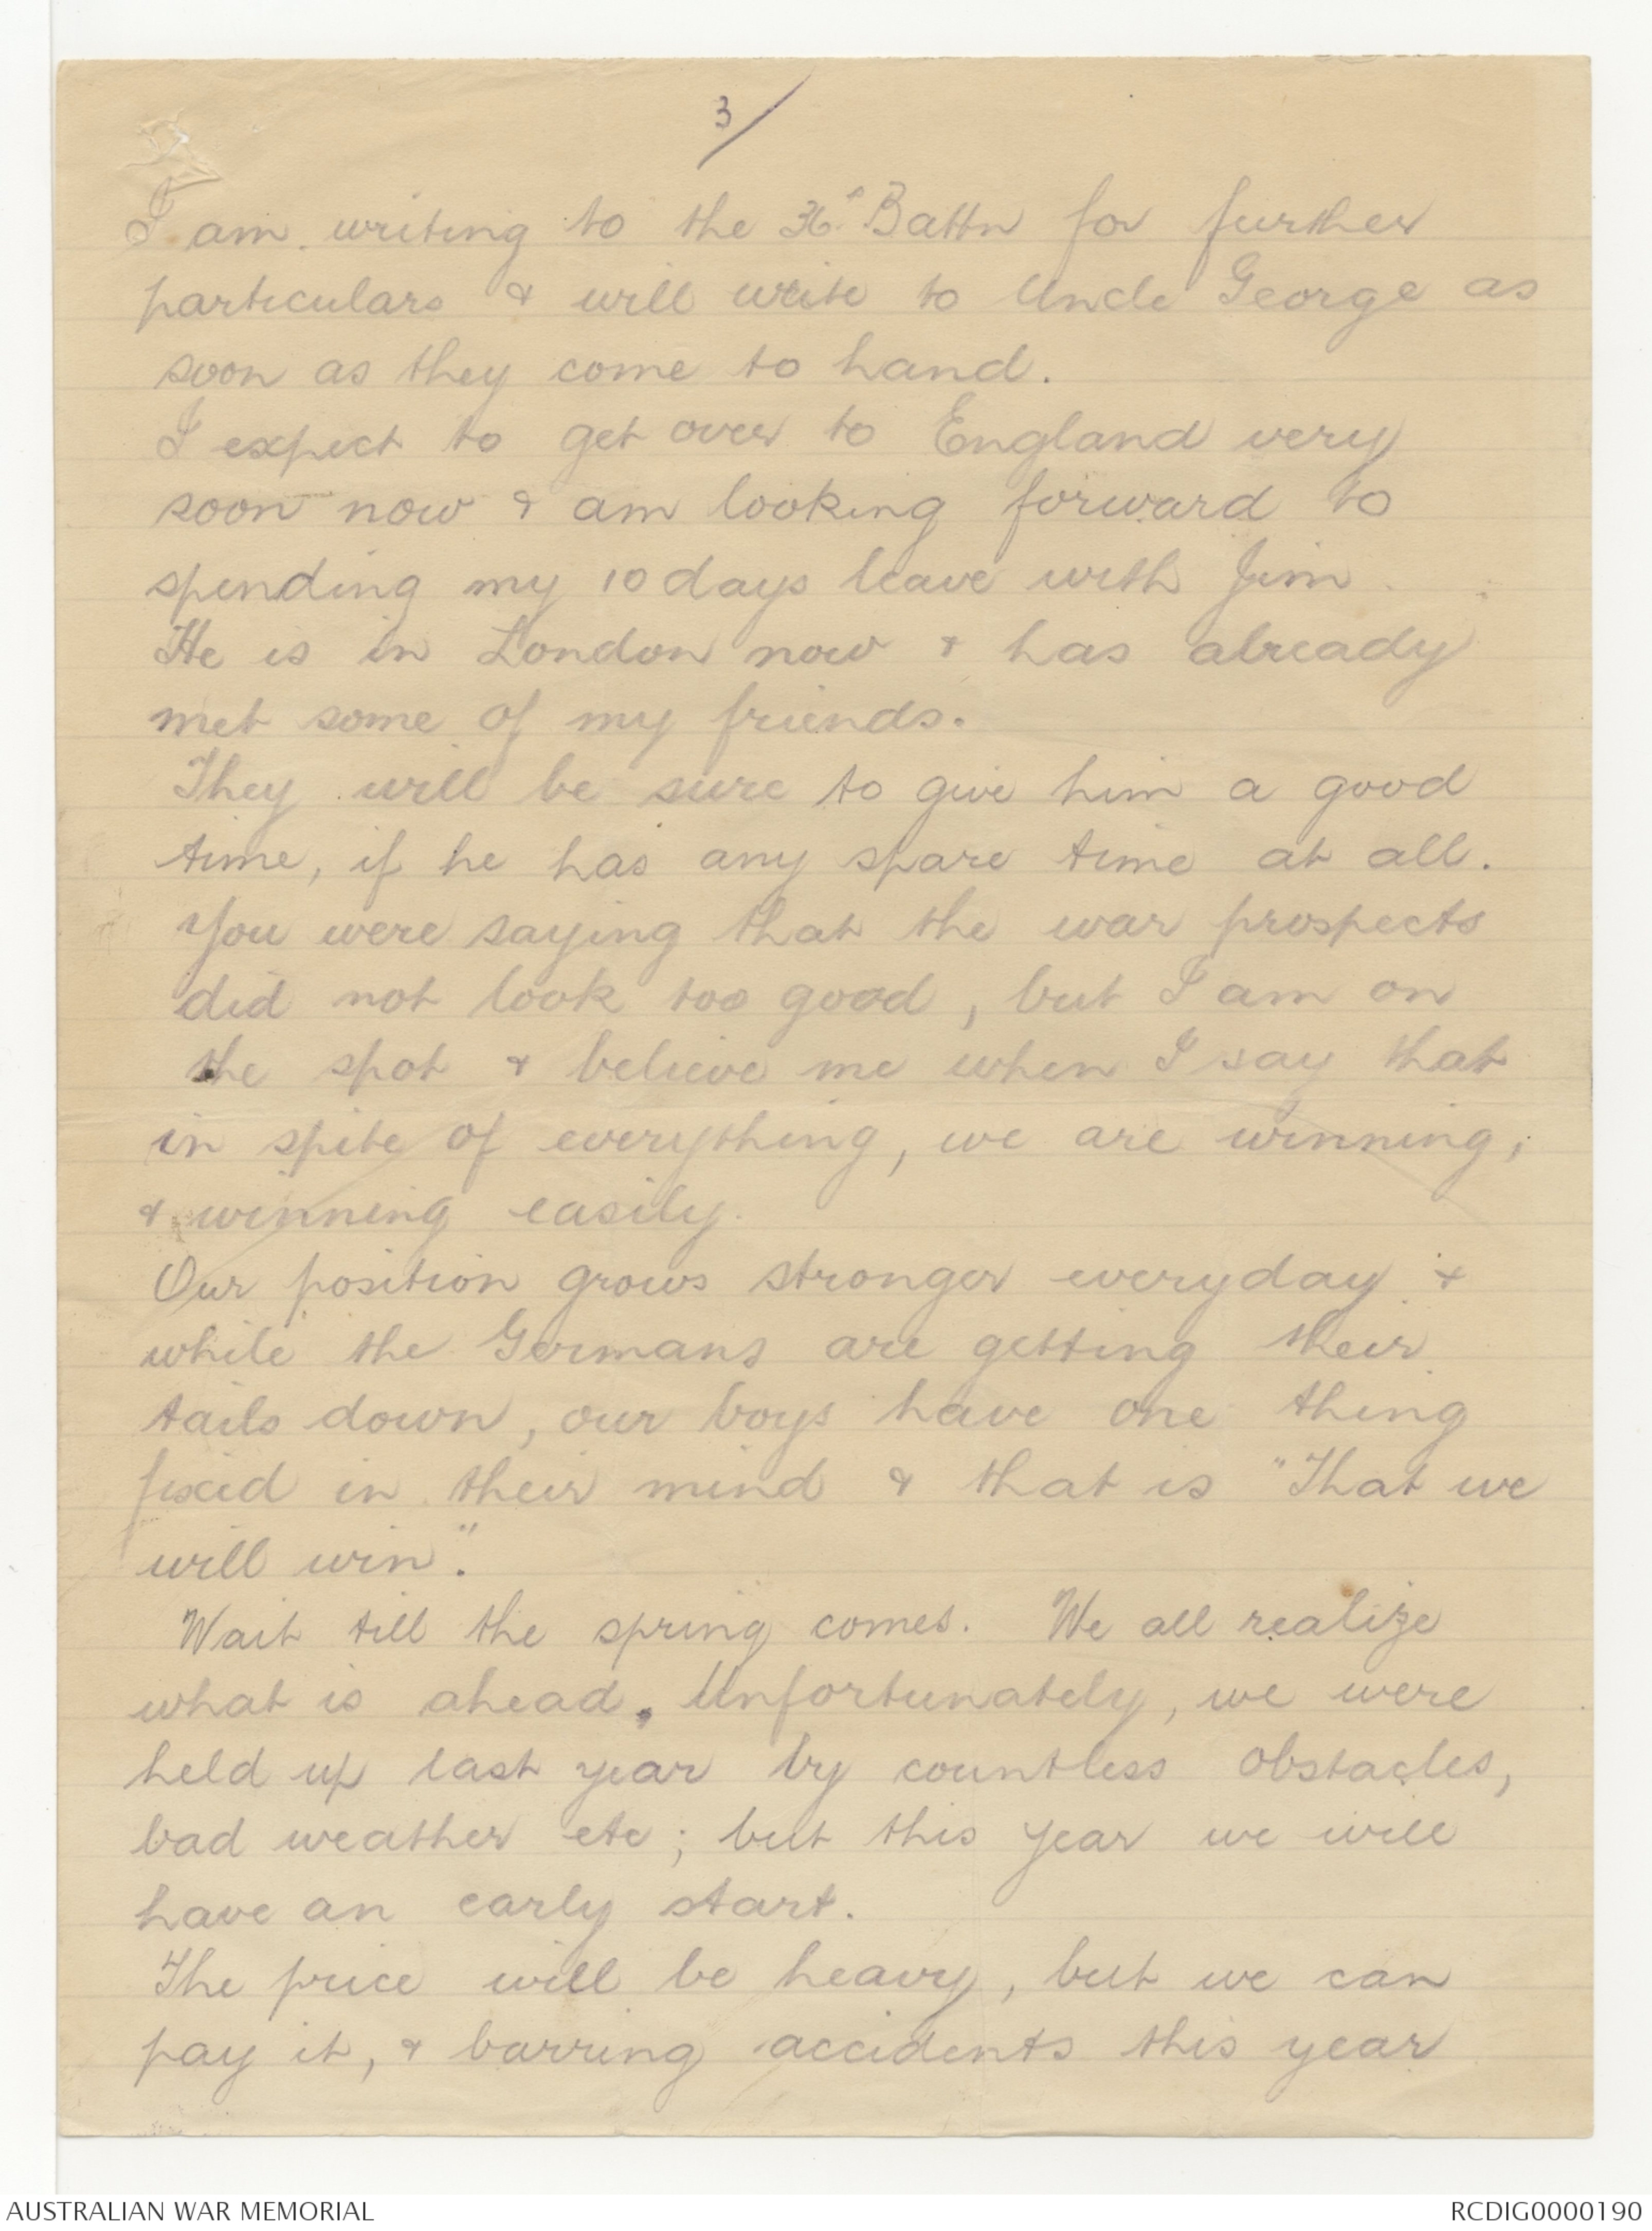 3/
I am writing to the 36th Battn for further
particulars & will write to Uncle George as
soon as they come to hand.
I expect to get over to England very
soon now & am looking forward to
spending my 10 days leave with Jim.
He is in London now & has already
met some of my friends.
They will be sure to give him a good
time, if he has any spare time at all.
You were saying that the war prospects
did not look too good, but I am on
the spot & believe me when I say that
in spite of everything, we are winning,
& winning easily.
Our position grows stronger everyday &
while the Germans are getting their
tails down, our boys have one thing
fixed in their mind & that is "That we
will win".
Wait till the spring comes. We all realize
what is ahead. Unfortunately, we were
held up last year by countless obstacles,
bad weather etc; but this year we will
have an early start.
The price will be heavy, but we can
pay it, & barring accidents this year
AUSTRALIAN WAR MEMORIAL
RCDIG0000190